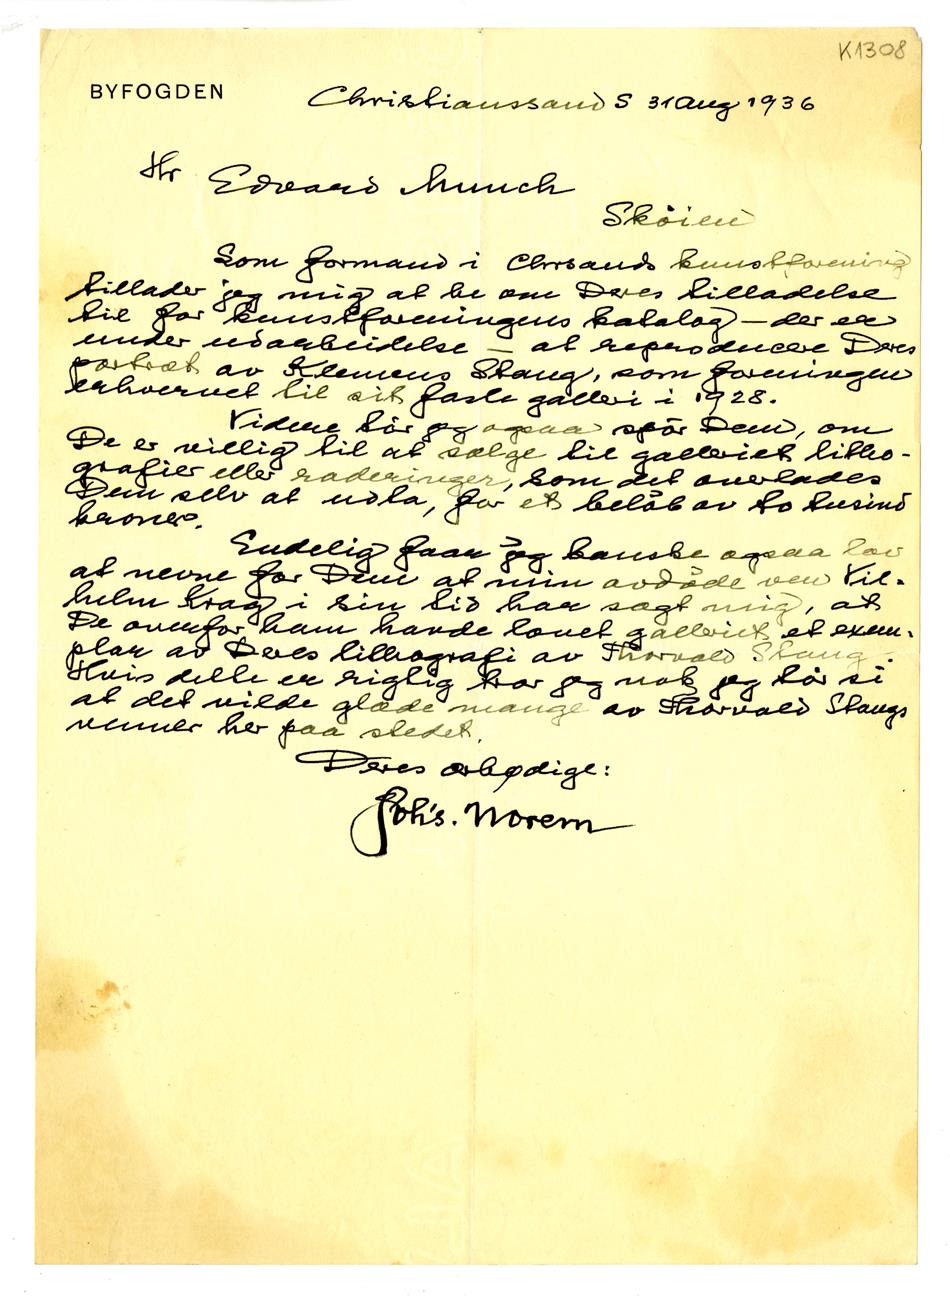 K1308
BYFOGDEN
Christianssand S 31 Aug 1936
Hr Edvard Munch
Sköien
Som formand i Chrsands kunstforening
tillader jeg mig at be om Deres tilladelse
til for kunstforeningens katalog – der er
under udarbeidelse – at reproducere Deres
portræt av Klemens Stang, som foreningen
erhvervet til sit faste galleri i 1928.
Videre tör jeg ogsaa spör Dem, om
De er villig til at sælge til galleriet litho-
grafier eller raderinger, som det overlades
Dem selv at udta, for et belöb av to tusind
kroner.
Endelig faar jeg kanske ogsaa lov
at nevne for Dem at min avdöde ven Vil-
helm Krag i sin tid har sagt mig, at
De overfor ham havde lovet galleriet et exem-
plar av Deres lithografi av Thorvald Stang.
Hvis dette er rigtig tror jeg nok jeg tör si
at det vilde glæde mange av Thorvald Stangs
venner her paa stedet.
Deres ærbødige:
Joh's. Norem